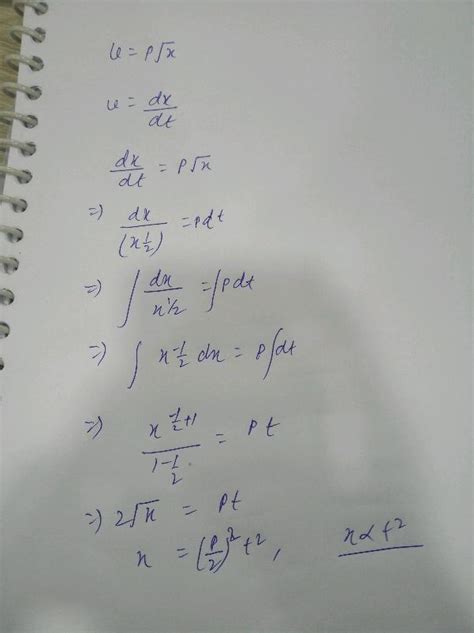 v = p√x
v = dx/dt
dx/dt = p√x
⇒ dx/(x^1/2) = pdt
⇒ ∫ dx/x^1/2 = ∫pdt
⇒ ∫ x^-1/2 dx = p∫dt
⇒ x^(-1/2+1)/(1-1/2) = pt
⇒ 2√x = pt
x = (p/2)^2 t^2, x∝t^2